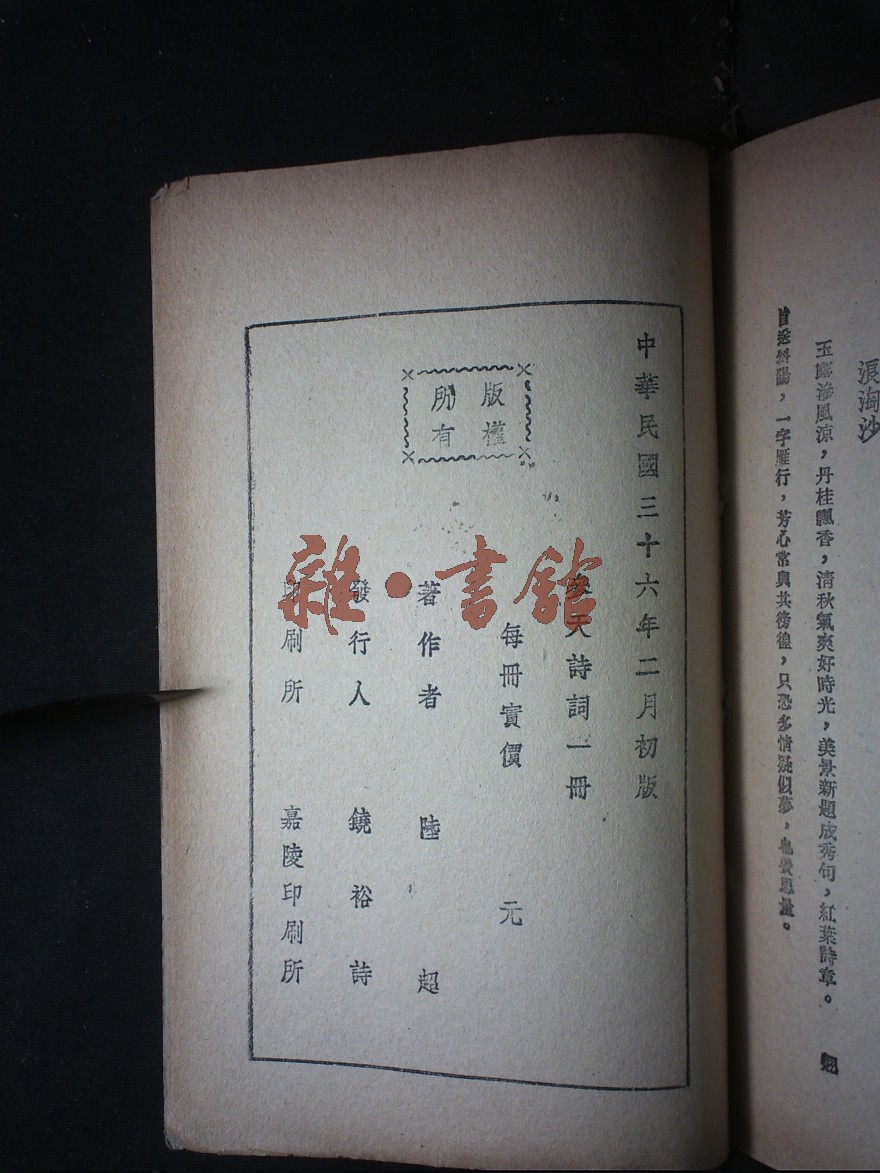 浪淘沙
玉露滲風涼，丹桂飄香，清秋氣爽好時光，美景新題成秀句，紅葉詩章。
目送斜陽，一字雁行，芳心常與其徬徨，只恐多情疑似夢，也費思量。
中華民國三十六年二月初版
天詩詞一冊
每冊實價　元
版權
所有
著作者　陸超
發行人　饒裕詩
印刷所　嘉陵印刷所
雜・書館